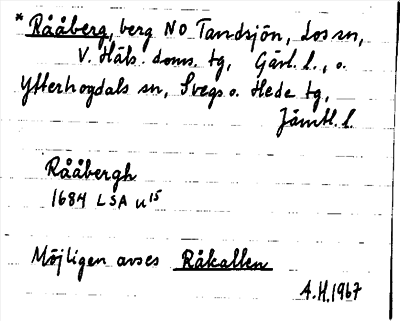 * Rååberg, berg NO Tandsjön, Los sn,
V. Häls. doms. tg, Gävl. l., o.
Ytterhogdals sn, Svegs o. Hede tg,
Jämtl. l.
Rååbergh
1684 LSA u¹⁵
Möjligen avses Råkallen
A.H. 1967